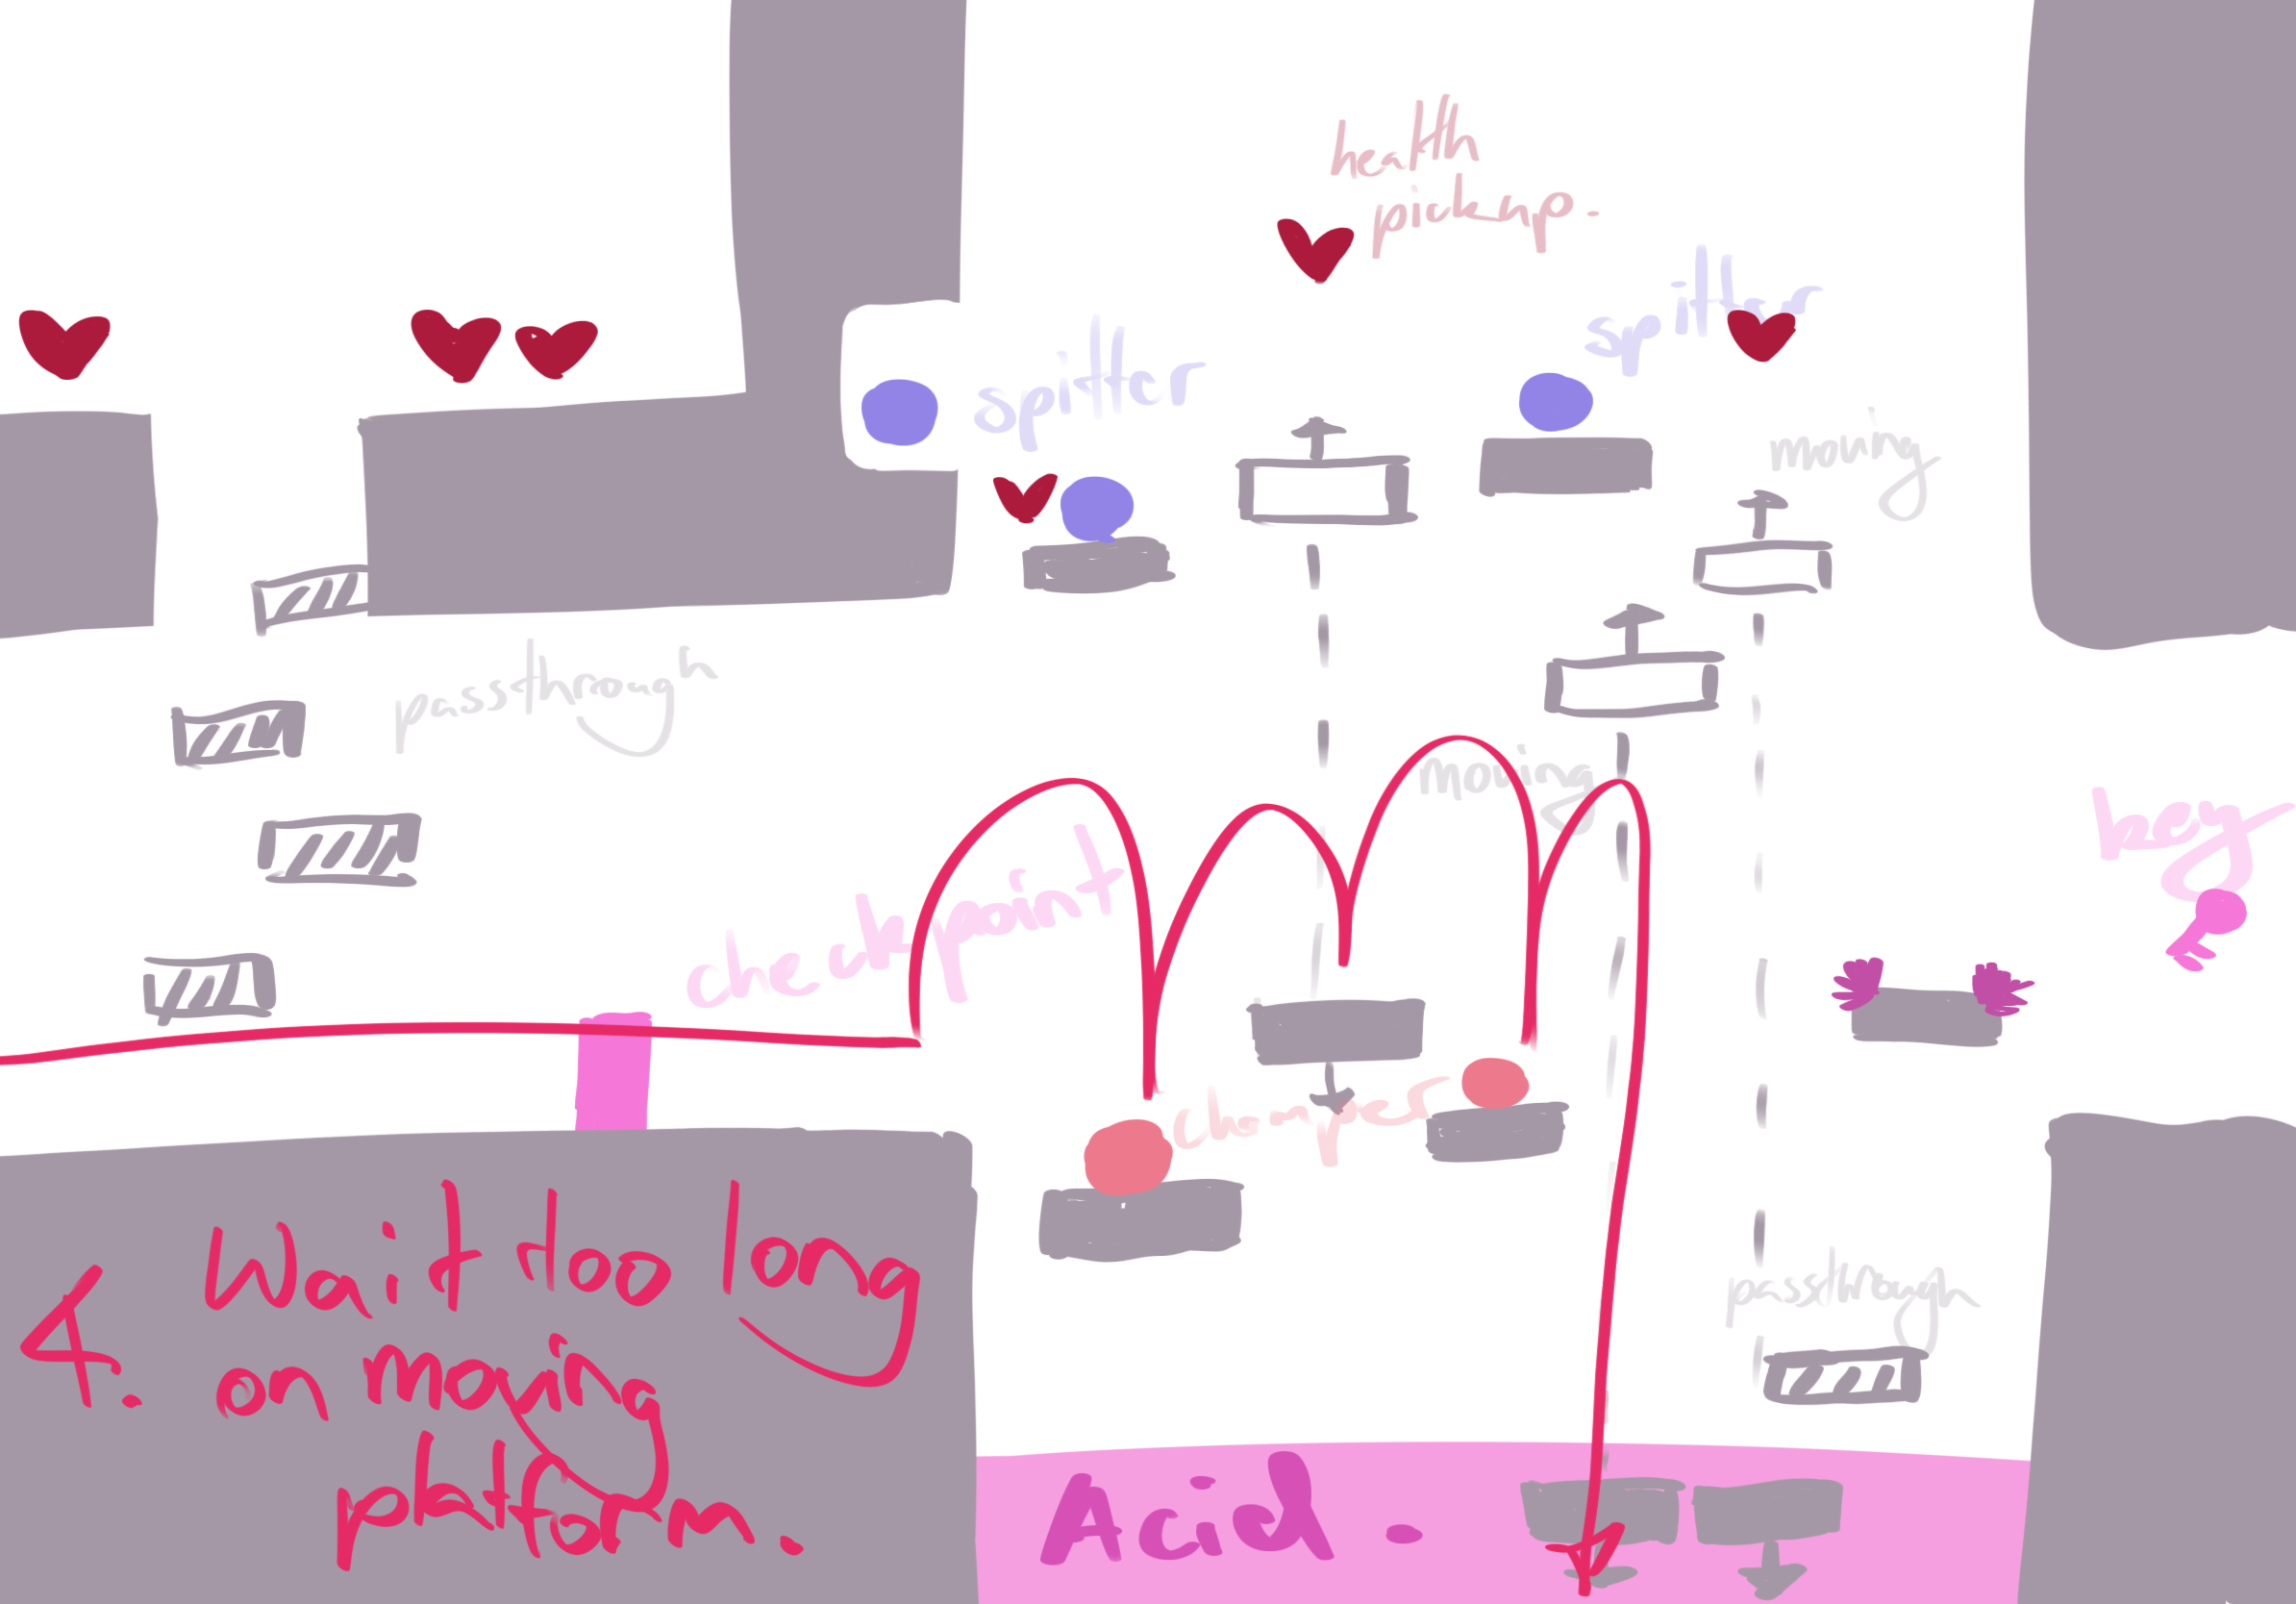 health
pickup.
spitter
spitter
moving
passthrough
moving
key
checkpoint
chomper
4. Wait too long
on moving
platform.
passthrough
Acid.